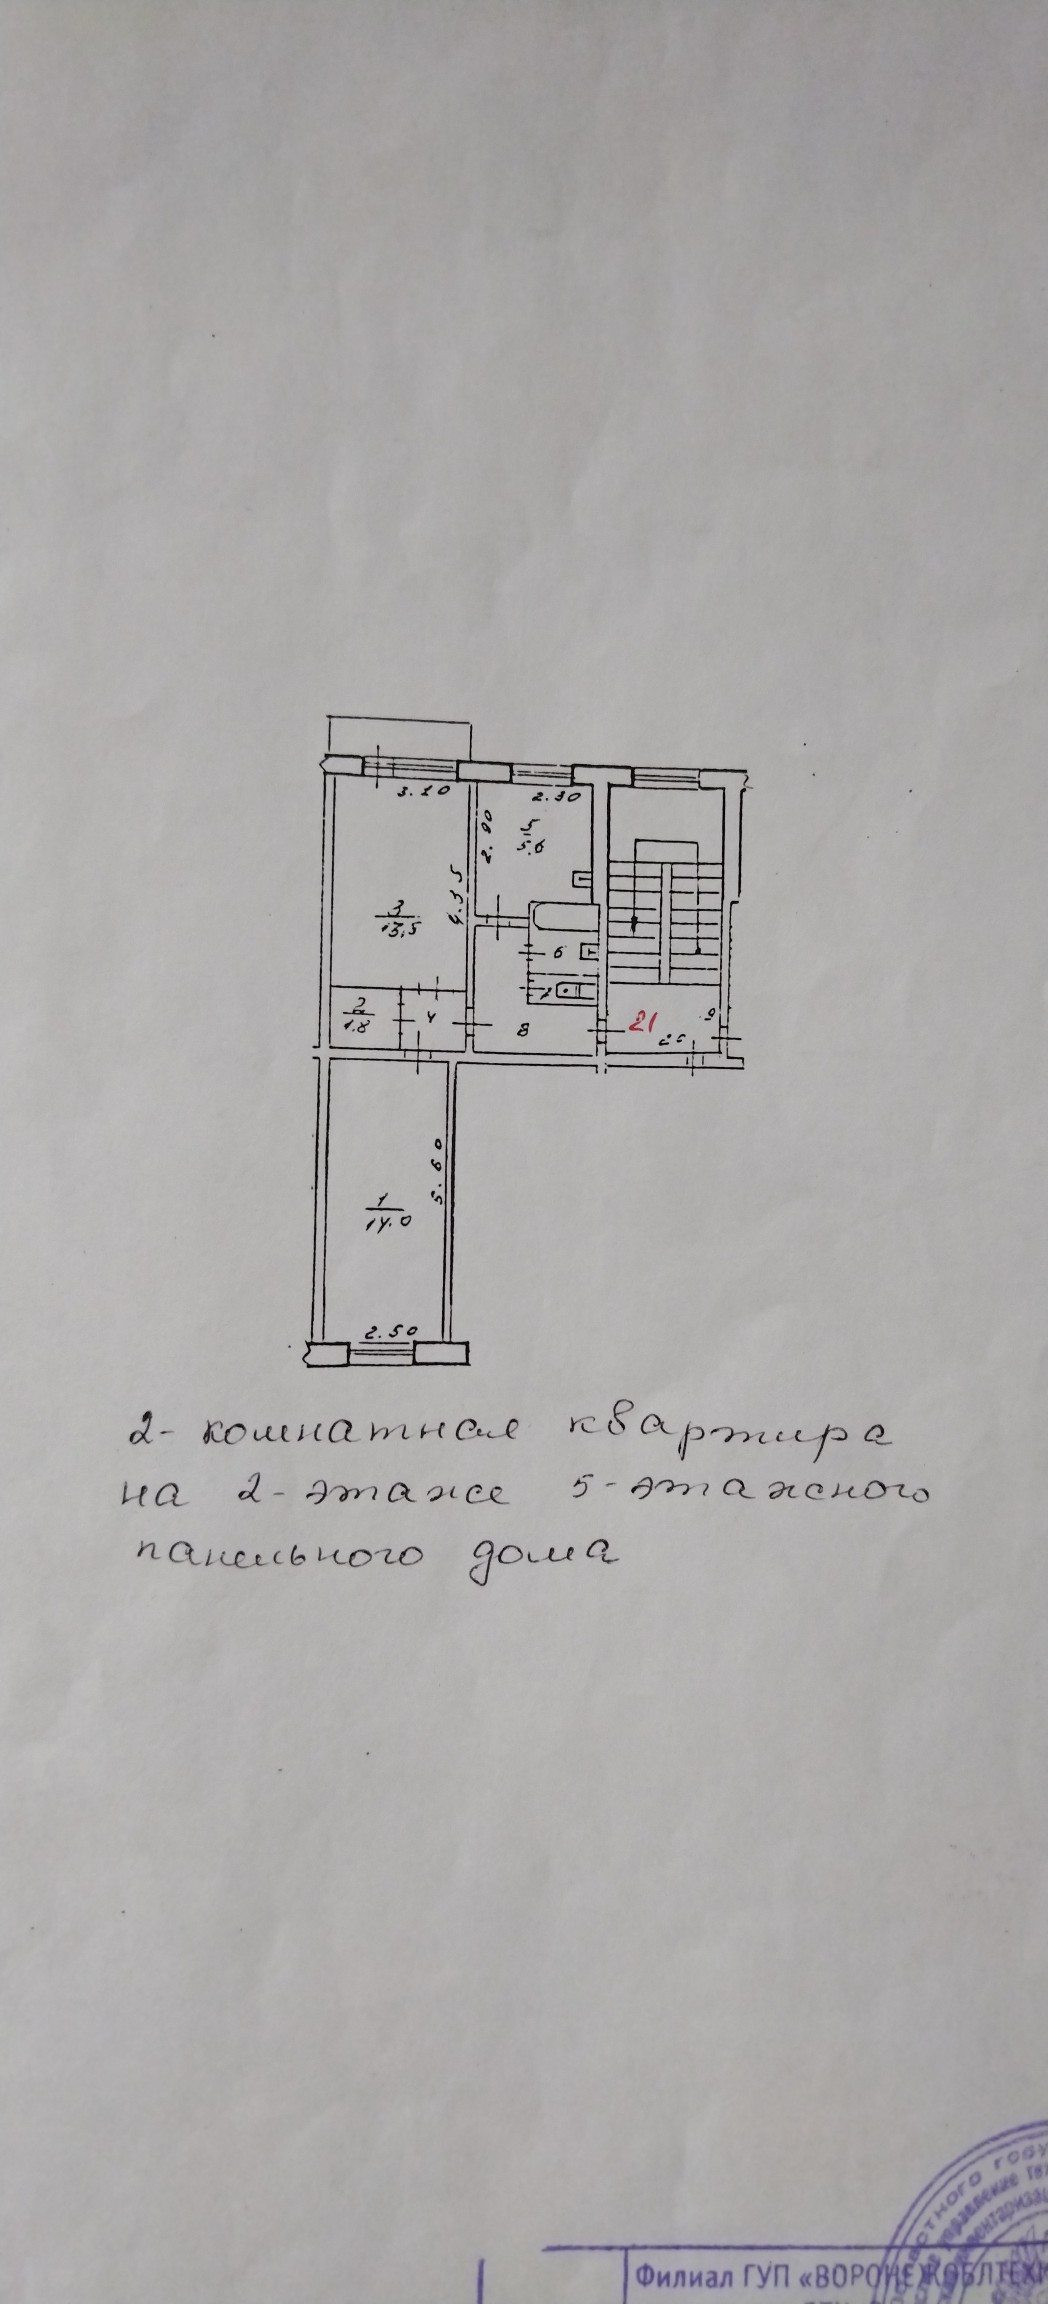 3.10
2.30
2.90
5
5.6
4.35
3
13,5
6
7
2
1.8
4
8
21
9
5.60
1
14.0
2.50
2- комнатная квартира
на 2- этаже 5-этажного
панельного дома
Филиал ГУП «ВОРОНЕЖОБЛТЕХИ